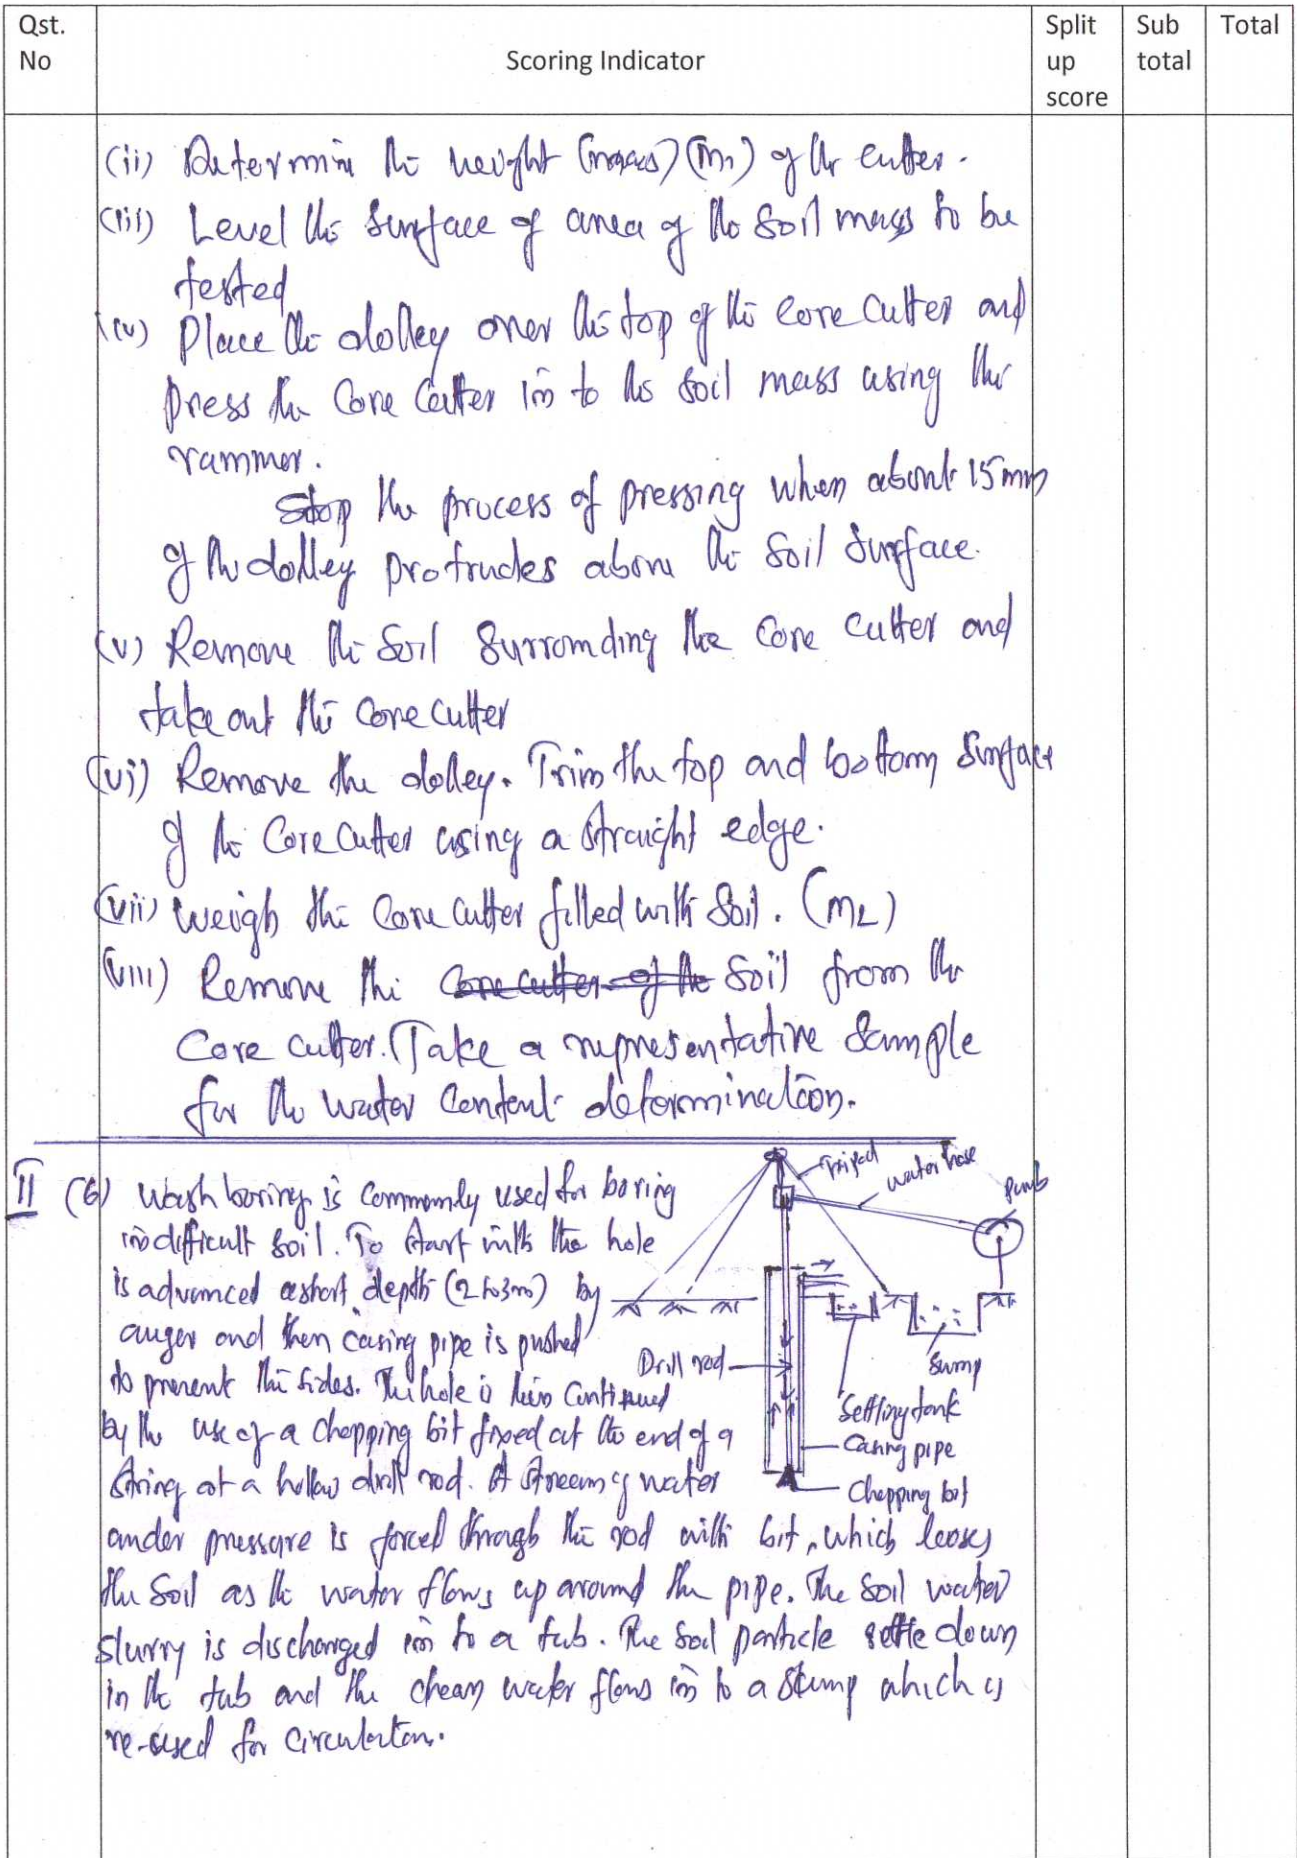 Qst. No
Scoring Indicator
Split up score
Sub total
Total
(ii) Determine the weight (mass) (m1) of the cutter.
(iii) Level the surface of area of the soil mass to be
tested
(iv) Place the dolley over the top of the core cutter and
press the core cutter in to the soil mass using the
rammer.
Stop the process of pressing when about 15mm
of the dolley protrudes above the soil surface.
(v) Remove the soil surrounding the core cutter and
take out the core cutter
(vi) Remove the dolley. Trim the top and bottom surface
of the core cutter using a straight edge.
(vii) weigh the core cutter filled with soil. (m2)
(viii) Remove the core cutter of the soil from the
core cutter. Take a representative sample
for the water content determination.
II (6) Wash boring is commonly used for boring
in difficult soil. To start with the hole
is advanced a short depth (2 to 3m) by
auger and then casing pipe is pushed
to prevent the sides. The hole is then continued
by the use of a chopping bit fixed at the end of a
string of a hollow drill rod. A stream of water
under pressure is forced through the rod with bit, which looses
the soil as the water flows up around the pipe. The soil water
slurry is discharged in to a tub. The soil particle settle down
in the tub and the clean water flows in to a stump which is
re-used for circulation.
Tripod
water hose
Pump
Drill rod
Sump
Settling tank
Casing pipe
Chopping bit